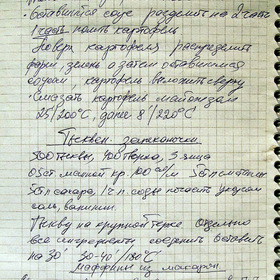 Оставшийся соус разделить на 2 части
1 часть полить картофель
Поверх картофеля распределить
фарш, зелень а затем оставшимся
соусом, картофель выложить сверху
Смазать картофель майонезом
25/200°C, далее 8/220°C
Тыквен. запеканочки
500 тыквы, 400 творка, 3 яйца
05 ст. манной кр. 100 сл/м
50 г сахара / ч.л. соды погасить уксусом
соль, ванилин.
Тыкву на крупной терке отдельно
все ингредиенты соединить оставить
на 30' 30-40'/180°C
маффины из макарон